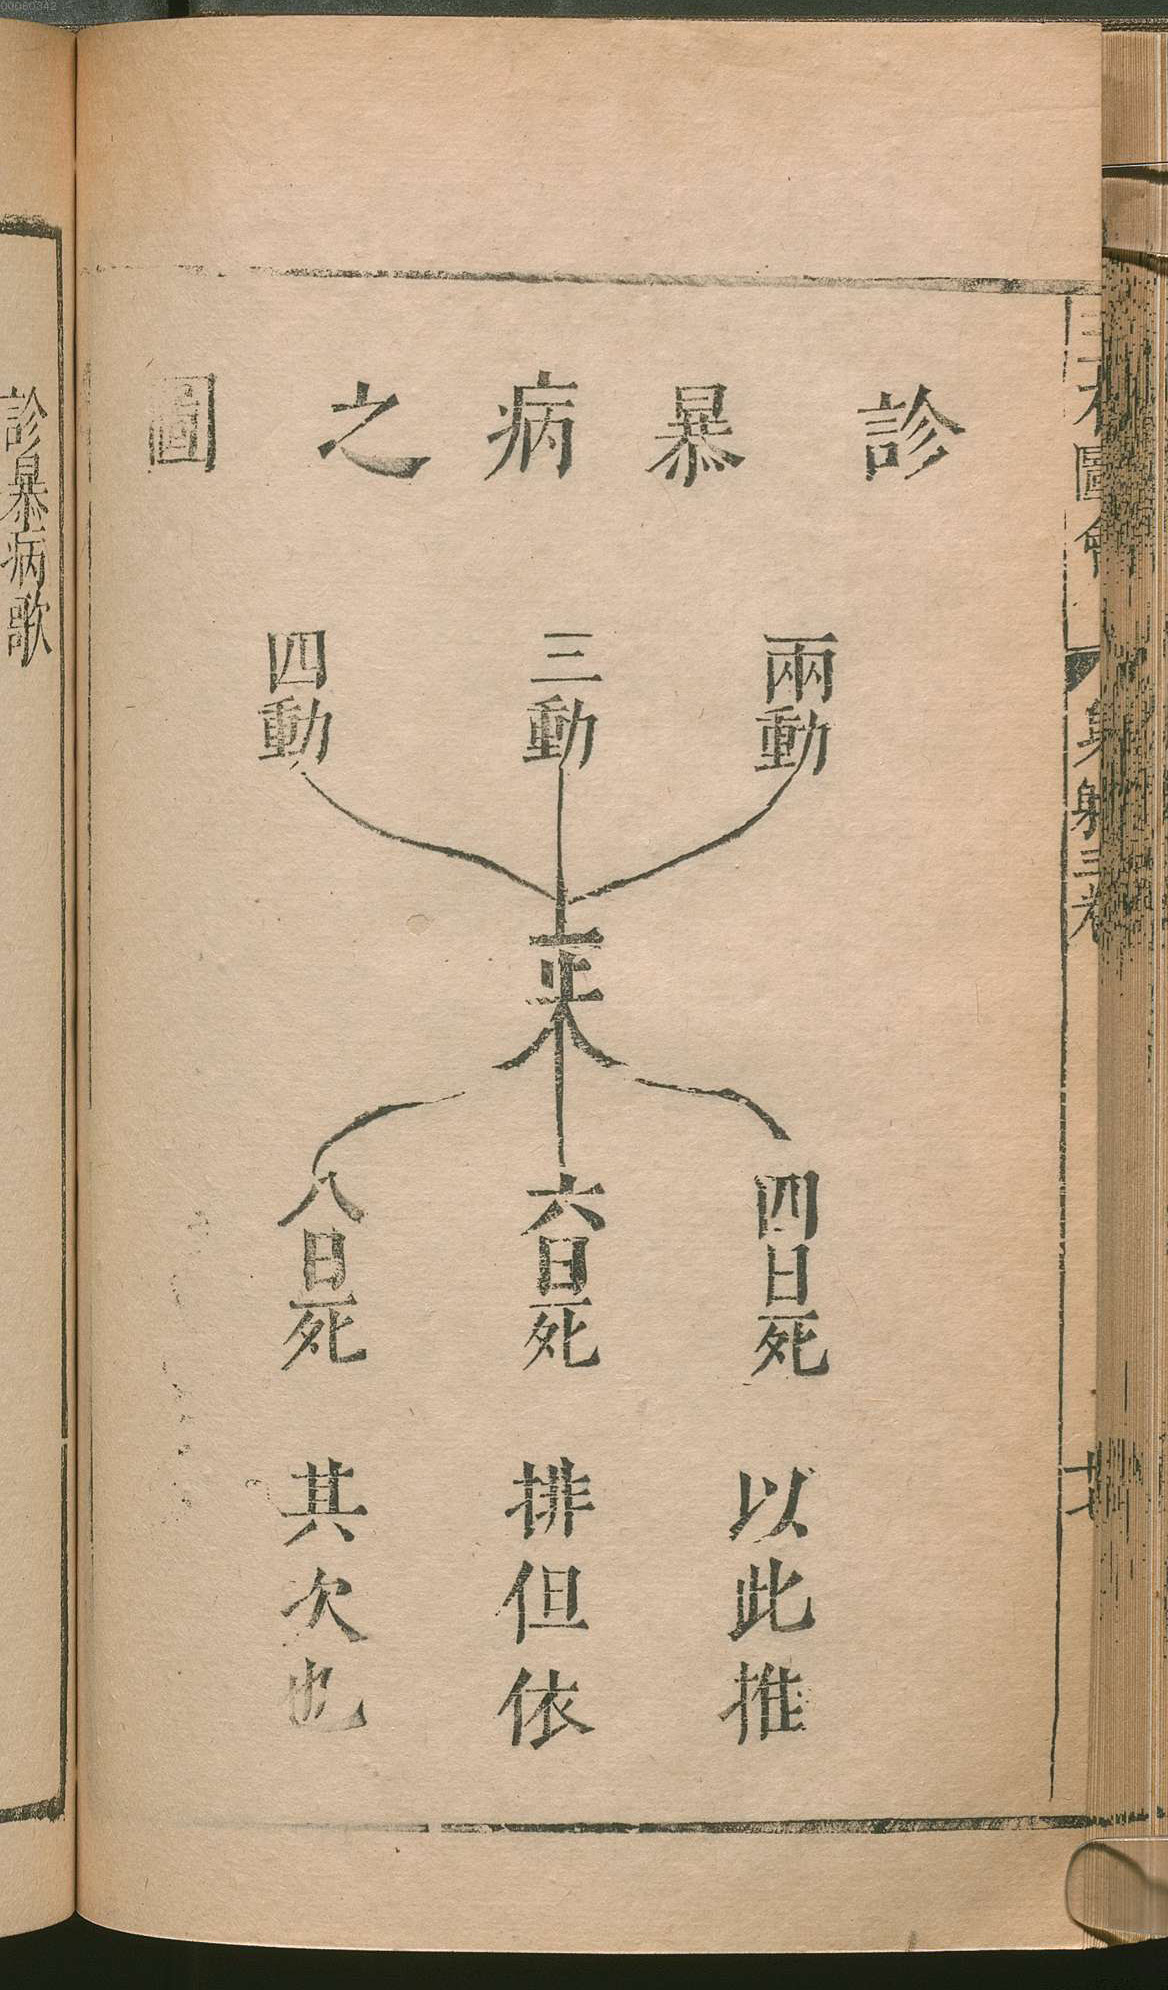 診暴病之圖
兩動
三動
四動
止来
四日死
六日死
八日死
以此推
排但依
其次也
圖會
身體三卷
診暴病歌
00080342